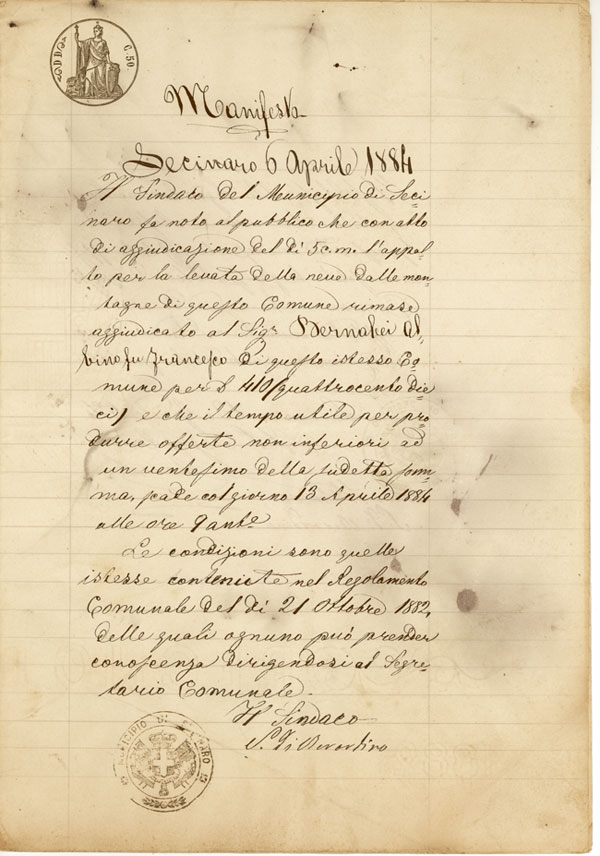 C. 50
Manifesto
Secinaro 6 Aprile 1884
Il Sindaco del Municipio di Seci=
naro fa noto al pubblico che con atto
di aggiudicazione del dì 5 c.m. l'appal=
to per la levata della neve dalle mon=
tagne di questo Comune rimase
aggiudicato al Sigr Bernabei Al=
bino fu Francesco di questo istesso Co=
mune per £ 410 (quattrocento die=
ci) e che il tempo utile per pro=
durre offerte non inferiori ad
un ventesimo della sudetta som=
ma, scade col giorno 13 Aprile 1884
alle ore 9 ante
Le condizioni sono quelle
istesse contenute nel Regolamento
Comunale del dì 21 Ottobre 1882,
delle quali ognuno può prender
conoscenza dirigendosi al Segre=
tario Comunale.
Il Sindaco
MUNICIPIO DI SECINARO